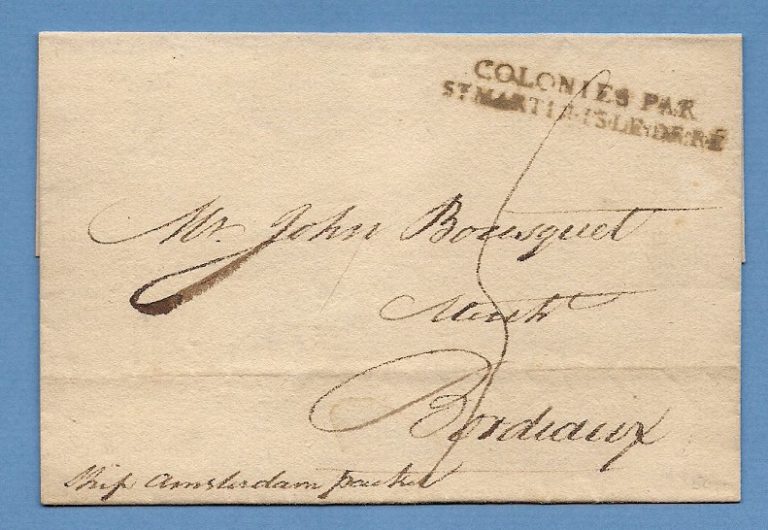 COLONIES PAR
ST MARTIN-ISLE-DE-RÉ
Mr. John Bousquet
Bordeaux
Ship Amsterdam packet